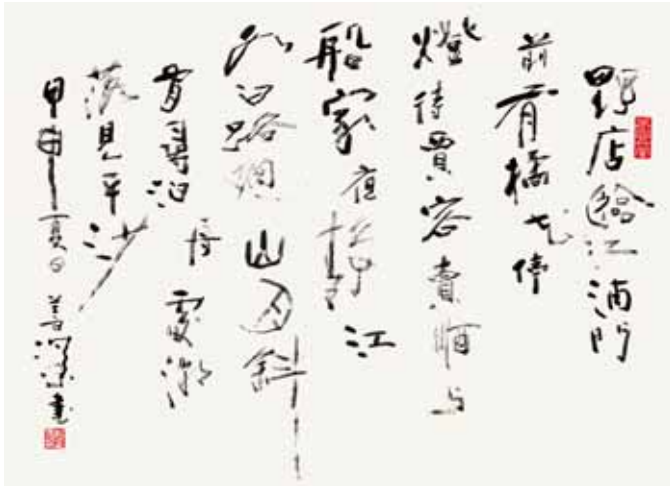 野店臨江浦門
前有橘花停
燈待賈客賣酒与
船家夜靜江
水白路迴山月斜
尋泊處潮
落見平沙
甲申夏日善書